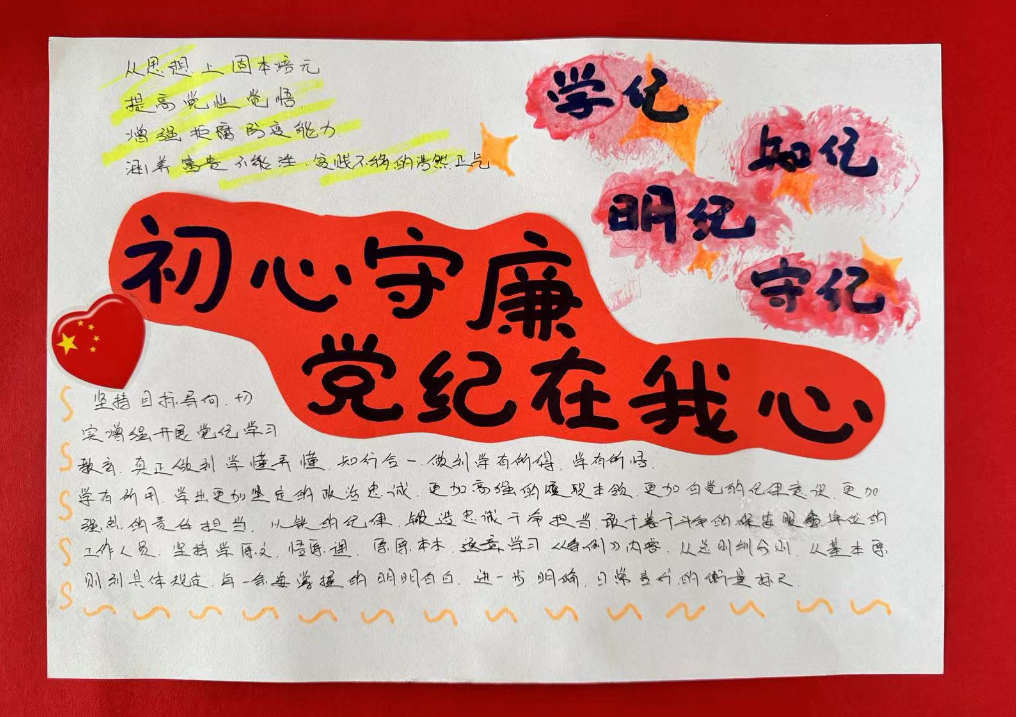 从思想上固本培元
提高党性觉悟
增强拒腐防变能力
涵养富贵不能淫、贫贱不移的浩然正气
学纪
知纪
明纪
守纪
初心守廉
党纪在我心
坚持目标导向、切
实增强开展党纪学习
教育，真正做到学懂弄懂，知行合一，做到学有所得，学有所悟，
学有所用，学出更加坚定的政治忠诚，更加高强的履职本领，更加自觉的纪律意识，更加
强烈的责任担当，以铁的纪律，锻造忠诚干净担当，敢于善于斗争的保密服务单位的
工作人员，坚持学原文，悟原理，原原本本，逐章学习《条例》内容，从总则到分则，从基本原
则到具体规定，每一条要掌握的明明白白，进一步明确，日常言行的衡量标尺